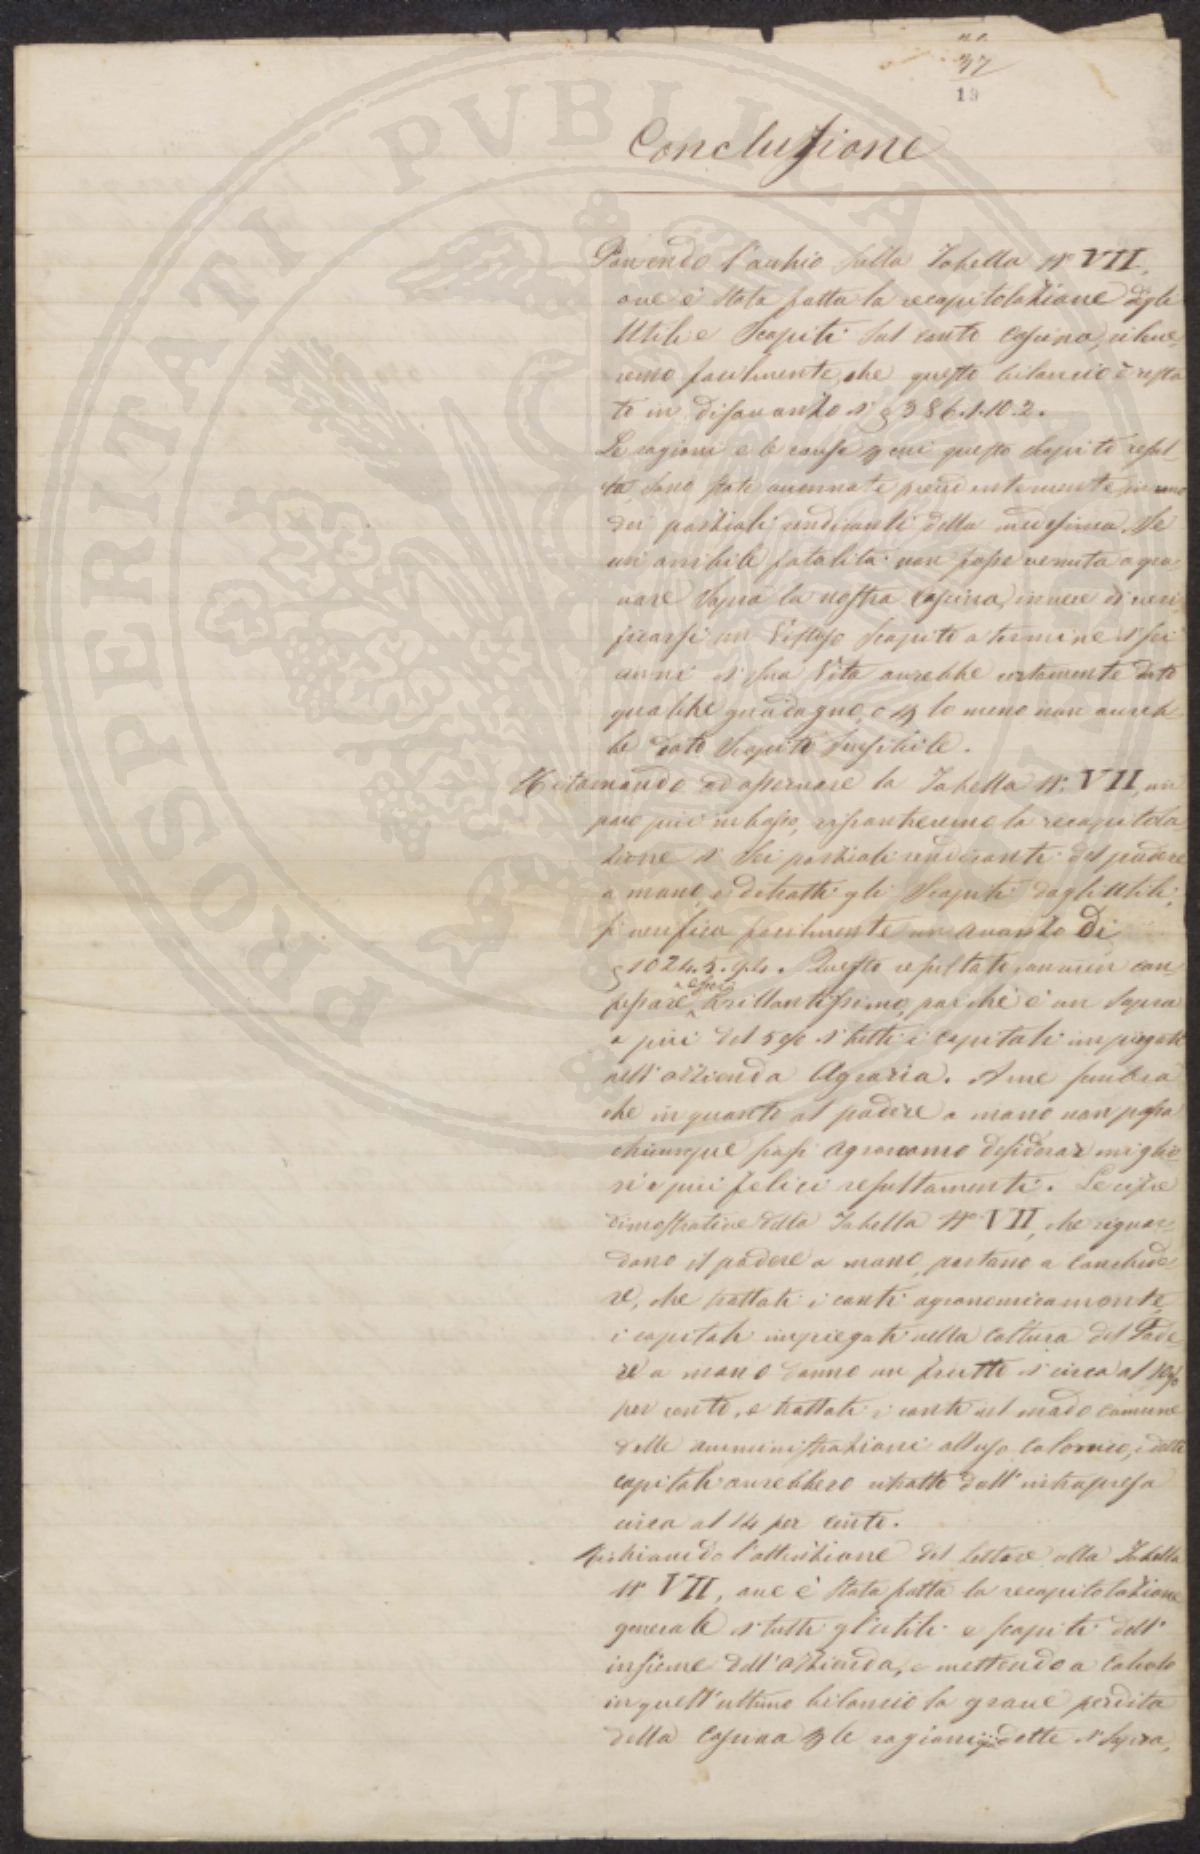 n.o.
37
19
Conclusione
Ponendo l'occhio sulla Tabella N° VII,
ove è stata fatta la recapitolazione degli
Utili e Scapiti sul conto Cascina, rileve-
remo facilmente, che questo bilancio è resta
to in disavanzo di £ 386.1.10.2.
Le ragioni e le cause p cui questo scapito resul-
ta sono state accennate precedentemente in uno
dei parziali rendiconti della medesima. Se
un orribile fatalità non fosse venuta a gra
vare sopra la nostra Cascina, invece di veri
ficarsi un vistoso scapito a termine di sei
anni di sua vita avrebbe certamente dato
qualche guadagno, o p lo meno non avreb-
be dato scapito sensibile.
Ritornando ad osservare la Tabella N°. VII, un
poco più in basso, riscontreremo la recapitola
zione di sei parziali rendiconti del podere
a mano, e detratti gli Scapiti dagli Utili,
si verifica facilmente un avanzo di
£ 1024.5.4.4. Questo resultato convien con-
fessare essere brillantissimo, poiché è un sopra
a più del 5 o/o di tutti i capitali impiegati
nell'azzienda Agraria. A me sembra
che in quanto al podere a mano non possa
chiunque siasi agronomo desiderar miglio-
ri e più felici resultamenti. Le cifre
dimostrative della Tabella N° VII, che riguar-
dano il podere a mano, portano a conchiude-
re, che trattati i conti agronomicamente,
i capitali impiegati nella coltura del Pode-
re a mano danno un frutto di circa al 10 o/o
per cento, e trattati i conti nel modo comune
delle amministrazioni all'uso Colonico, i detti
capitali avrebbero ritratto dall'intrapresa
circa al 14 per cento.
Richiamando l'attenzione del lettore alla Tabella
N° VII, ove è stata fatta la recapitolazione
generale di tutti gl'utili e scapiti dell'
insieme dell'azzienda, e mettendo a calcolo
in quest'ultimo bilancio la grave perdita
della Cascina p le ragioni dette di sopra,
PROSPERITATI PVBLICAE AVGENDAE